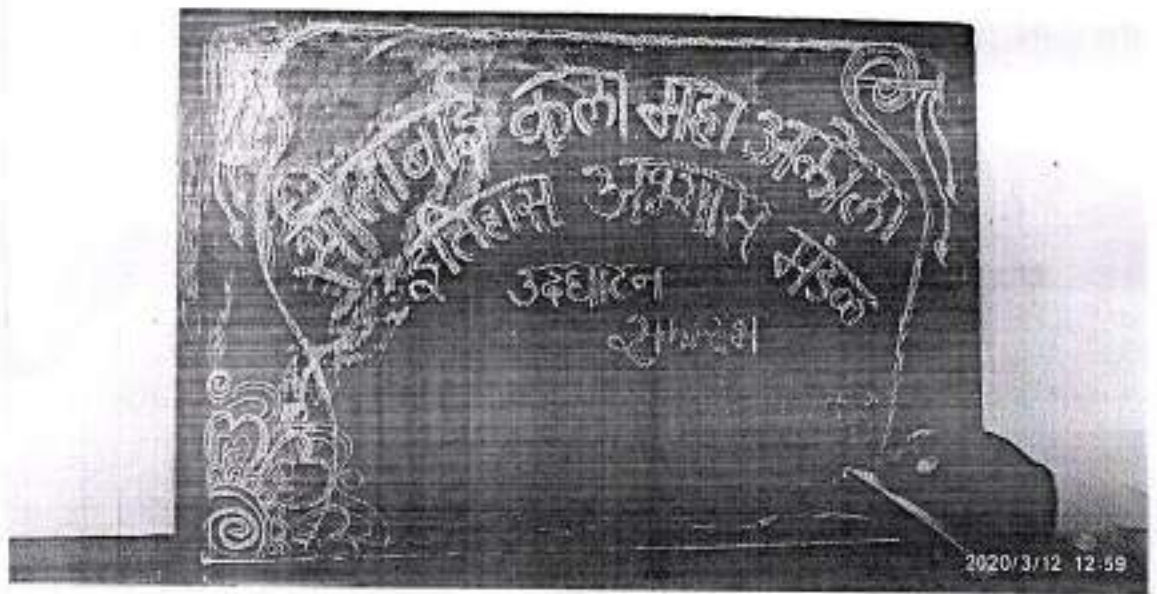 सीताबाई कला महा अकोला
इतिहास अभ्यास मंडळ
उद्घाटन
2020/3/12 12:59